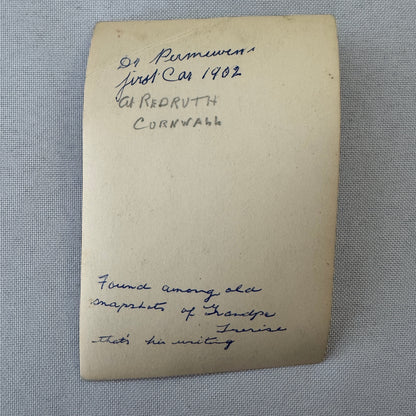 Dr Permewens
first Car 1902
At REDRUTH
CORNWALL
Found among old
snapshots of Grandpa
Trerise
that's his writing